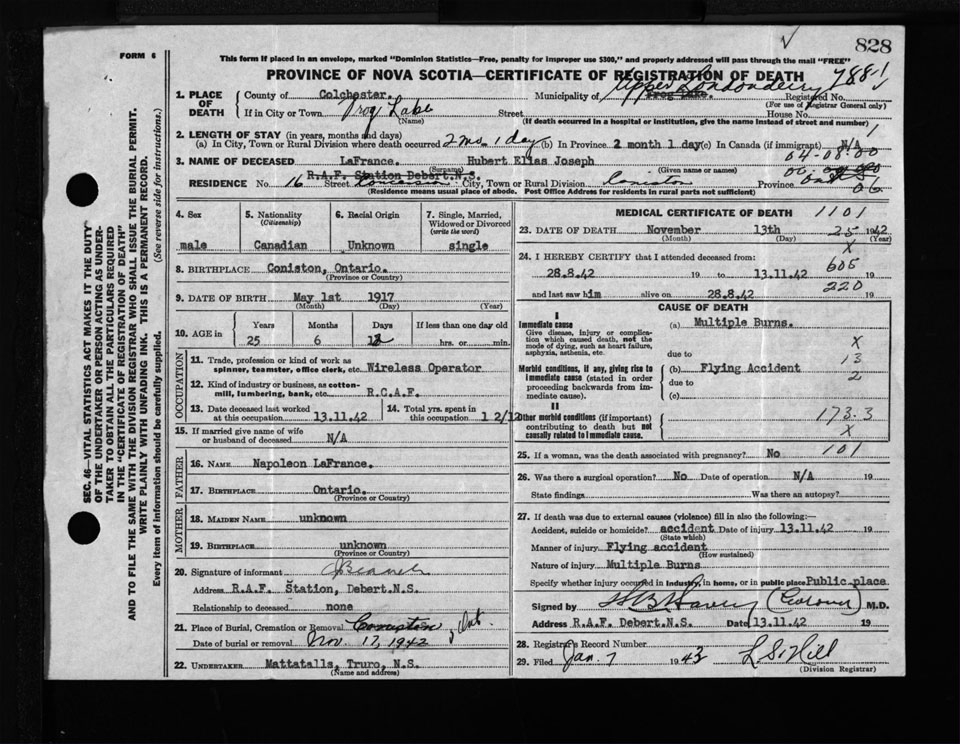 828
FORM 6
This form if placed in an envelope, marked "Dominion Statistics—Free, penalty for improper use $300," and properly addressed will pass through the mail "FREE"
PROVINCE OF NOVA SCOTIA—CERTIFICATE OF REGISTRATION OF DEATH
788-1
1. PLACE OF DEATH
County of Colchester. Municipality of Upper Londonderry Frog Lake. Registered No.
(For use of Registrar General only)
If in City or Town Frog Lake Street House No.
(Name) (If death occurred in a hospital or institution, give the name instead of street and number)
2. LENGTH OF STAY (in years, months and days)
(a) In City, Town or Rural Division where death occurred 2 ms. 1 day (b) In Province 2 month 1 day (c) In Canada (if immigrant) N/A
04-08-00
3. NAME OF DECEASED LaFrance. Hubert Elias Joseph
(Surname) (Given name or names)
R.A.F. Station Debert.N.S.
RESIDENCE No. 16 Street City, Town or Rural Division Province Ont
06
(Residence means usual place of abode. Post Office Address for residents in rural parts not sufficient)
4. Sex
male
5. Nationality
(Citizenship)
Canadian
6. Racial Origin
Unknown
7. Single, Married, Widowed or Divorced
(write the word)
single
8. BIRTHPLACE Coniston, Ontario.
(Province or Country)
9. DATE OF BIRTH May 1st 1917
(Month) (Day) (Year)
10. AGE in
Years Months Days If less than one day old
25 6 12 hrs. or min.
OCCUPATION
11. Trade, profession or kind of work as spinner, teamster, office clerk, etc. Wireless Operator
12. Kind of industry or business, as cotton-mill, lumbering, bank, etc. R.C.A.F.
13. Date deceased last worked at this occupation 13.11.42
14. Total yrs. spent in this occupation 1 2/12
15. If married give name of wife or husband of deceased N/A
FATHER
16. NAME Napoleon LaFrance.
17. BIRTHPLACE Ontario.
(Province or Country)
MOTHER
18. MAIDEN NAME unknown
19. BIRTHPLACE unknown
(Province or Country)
20. Signature of informant
Address R.A.F. Station, Debert.N.S.
Relationship to deceased none
21. Place of Burial, Cremation or Removal Coniston Ont.
Date of burial or removal Nov. 17, 1942
22. UNDERTAKER Mattatalls, Truro, N.S.
(Name and address)
MEDICAL CERTIFICATE OF DEATH 1101
23. DATE OF DEATH November 13th 25 1942
(Month) (Day) (Year)
X
24. I HEREBY CERTIFY that I attended deceased from:
605
28.8.42 19 to 13.11.42 19
220
and last saw him alive on 28.8.42 19
CAUSE OF DEATH
I
Immediate cause
Give disease, injury or complication which caused death, not the mode of dying, such as heart failure, asphyxia, asthenia, etc.
(a) Multiple Burns.
X
due to
13
Morbid conditions, if any, giving rise to immediate cause (stated in order proceeding backwards from immediate cause).
(b) Flying Accident
2
due to
(c)
II
Other morbid conditions (if important) contributing to death but not causally related to immediate cause.
173.3
X
25. If a woman, was the death associated with pregnancy? No 101
26. Was there a surgical operation? No Date of operation N/A 19
State findings Was there an autopsy?
27. If death was due to external causes (violence) fill in also the following:
Accident, suicide or homicide? accident Date of injury 13.11.42 19
(State which)
Manner of injury Flying accident
(How sustained)
Nature of injury Multiple Burns
Specify whether injury occurred in industry, in home, or in public place Public place
Signed by (Coroner) M.D.
Address R.A.F. Debert.N.S. Date 13.11.42 19
28. Registrar's Record Number
29. Filed Jan. 7 1943 L. S. Hill
(Division Registrar)
SEC. 46—VITAL STATISTICS ACT MAKES IT THE DUTY
OF THE UNDERTAKER OR PERSON ACTING AS UNDER-
TAKER TO OBTAIN ALL THE PARTICULARS REQUIRED
IN THE "CERTIFICATE OF REGISTRATION OF DEATH"
AND TO FILE THE SAME WITH THE DIVISION REGISTRAR WHO SHALL ISSUE THE BURIAL PERMIT.
WRITE PLAINLY WITH UNFADING INK. THIS IS A PERMANENT RECORD.
Every item of information should be carefully supplied. (See reverse side for instructions.)